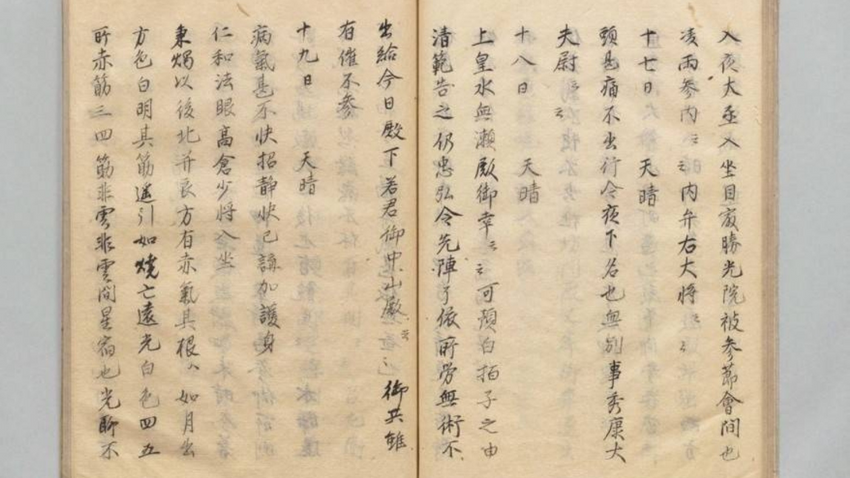 入夜大丞入坐自最勝光院被参節會間也
凌雨参内〻〻内弁右大将〻〻
十七日 天晴
頭甚痛不出行今夜下名也無別事秀康大
夫尉〻〻
十八日 天晴
上皇水無瀬殿御幸〻〻可預白拍子之由
清範告之仍忠弘令先陣了依所労無術不
出給今日殿下若君御中山殿〻〻御共雖
有催不参
十九日 天晴
病氣甚不快招静快已講加護身
仁和法眼高倉少将入坐
秉燭以後北并艮方有赤氣其根ハ如月出
方色白明其筋遙引如焼亡遠光白色四五
所赤筋三四筋非雲非雲間星宿也光聊不